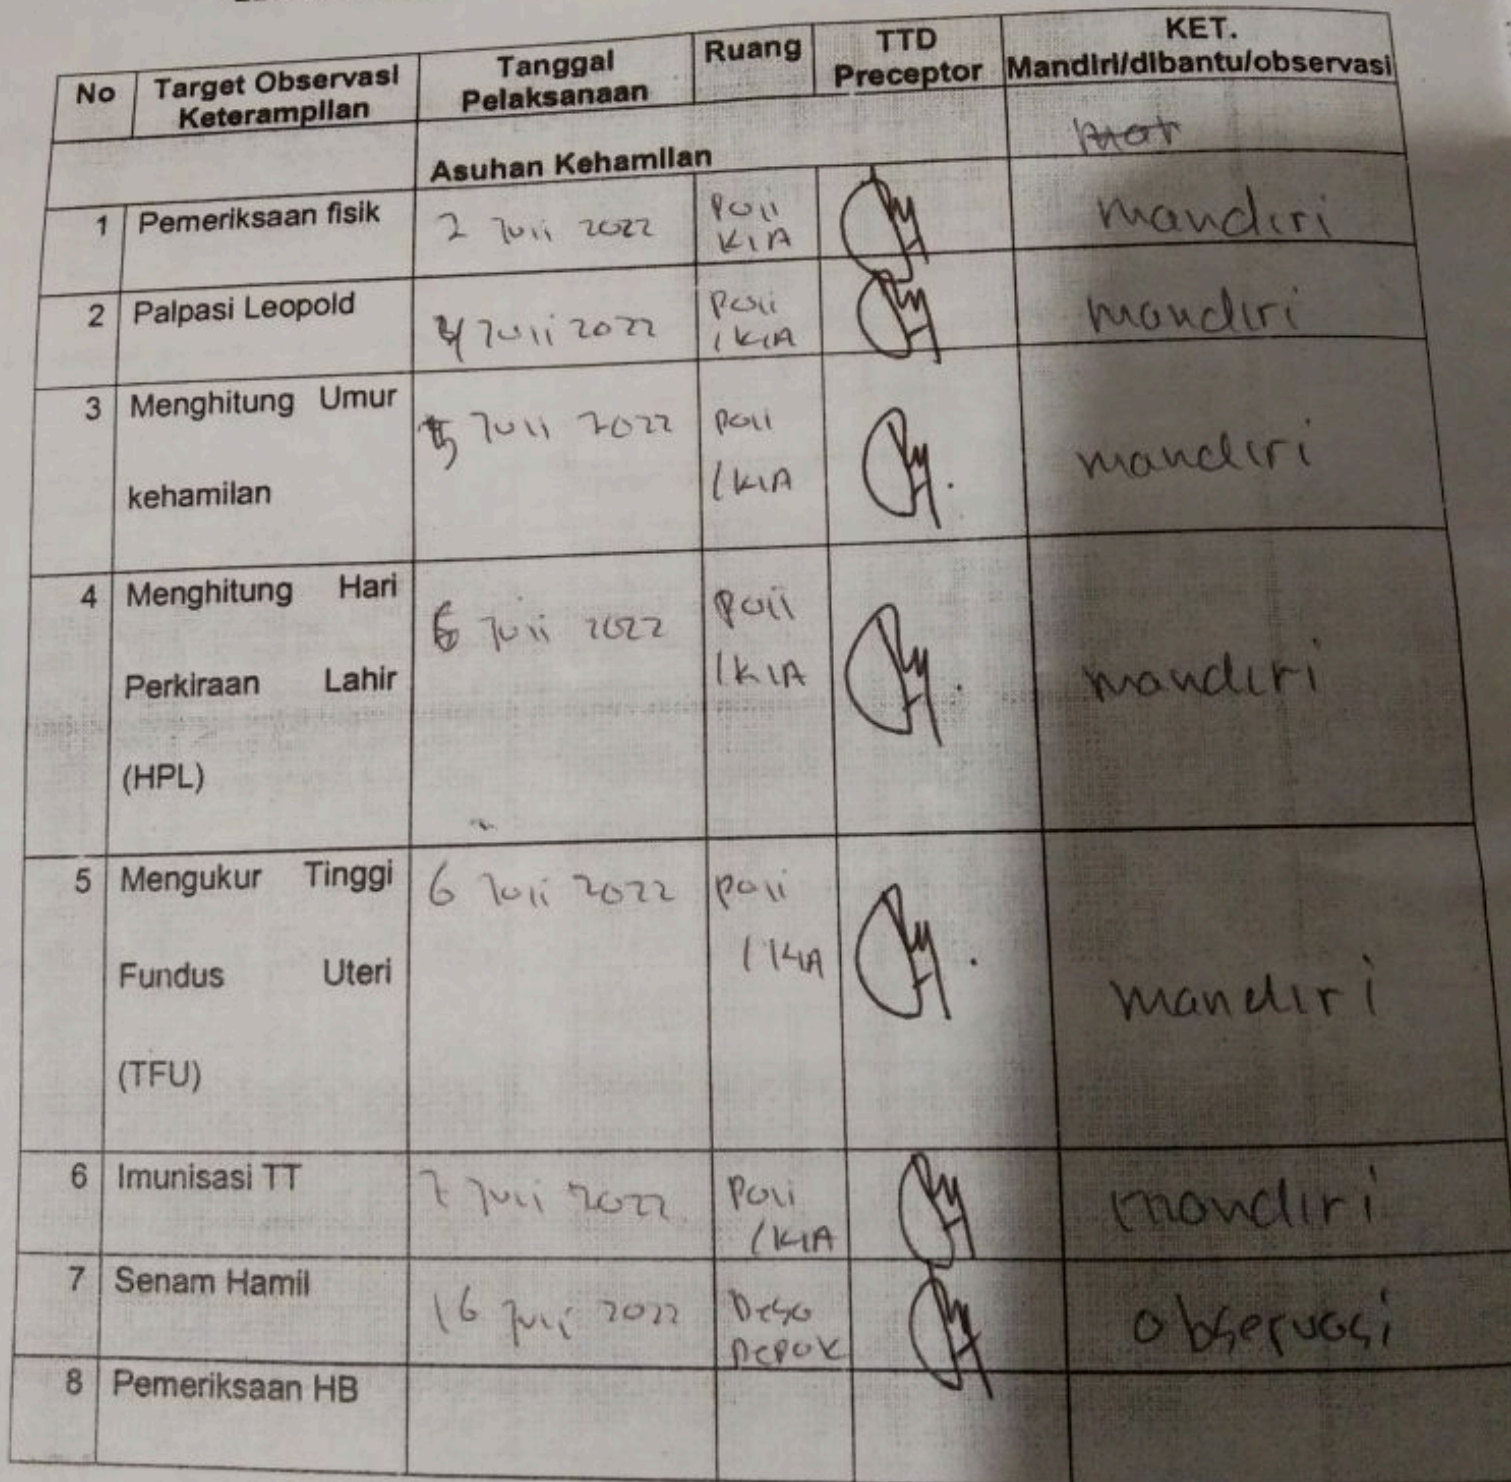 No Target Observasi Keterampilan Tanggal Pelaksanaan Ruang TTD Preceptor KET. Mandiri/dibantu/observasi
Asuhan Kehamilan
1 Pemeriksaan fisik 2 Juli 2022 Poli KIA mandiri
2 Palpasi Leopold 4 Juli 2022 Poli / KIA mandiri
3 Menghitung Umur 5 Juli 2022 Poli mandiri
kehamilan / KIA
4 Menghitung Hari 6 Juli 2022 Poli
Perkiraan Lahir / KIA mandiri
(HPL)
5 Mengukur Tinggi 6 Juli 2022 Poli
Fundus Uteri / KIA mandiri
(TFU)
6 Imunisasi TT 7 Juli 2022 Poli / KIA mandiri
7 Senam Hamil 16 Juli 2022 Desa Depok observasi
8 Pemeriksaan HB